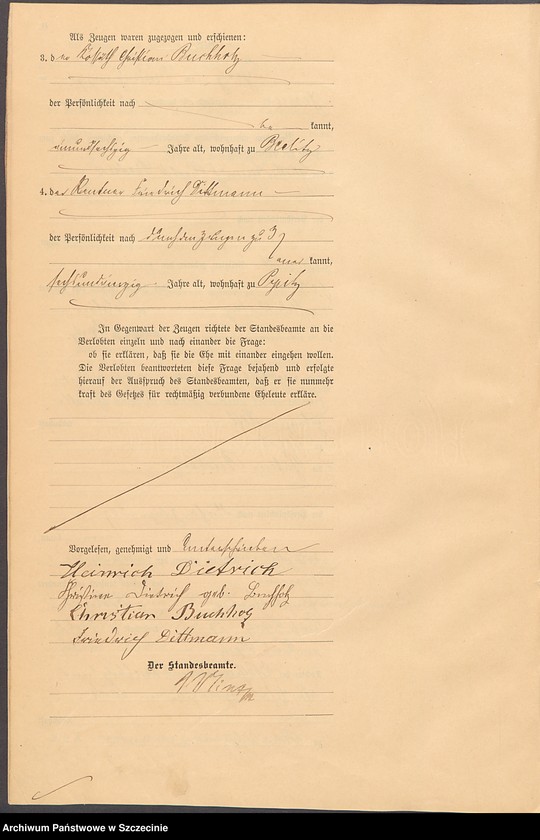 Als Zeugen waren zugezogen und erschienen:
3. der Kossäth Christian Buchholz
der Persönlichkeit nach
be kannt,
Jahre alt, wohnhaft zu
4. der Rentner Friedrich Dittmann
der Persönlichkeit nach durch den Zeugen zu 3
aner kannt,
Jahre alt, wohnhaft zu
In Gegenwart der Zeugen richtete der Standesbeamte an die
Verlobten einzeln und nach einander die Frage:
ob sie erklären, daß sie die Ehe mit einander eingehen wollen.
Die Verlobten beantworteten diese Frage bejahend und erfolgte
hierauf der Ausspruch des Standesbeamten, daß er sie nunmehr
kraft des Gesetzes für rechtmäßig verbundene Eheleute erkläre.
Vorgelesen, genehmigt und unterschrieben
Heinrich Dietrich
Christine Dietrich geb. Buchholz
Christian Buchholz
Friedrich Dittmann
Der Standesbeamte.
Archiwum Państwowe w Szczecinie